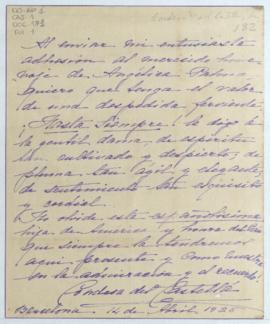 Al enviar mi entusiasta
adhesión al merecido home
naje de Angélica Palma
quiero que tenga el valor
de una despedida ferviente
¡Hasta siempre! le digo a
la gentil dama, de espíritu
tan cultivado y despierto; de
pluma tan ágil y elegante,
de sentimiento tan exquisito
y cordial
No olvide esta
hija de America y honra del
que siempre la tendremos
aqui presente y como
en la admiración y el recuerdo.
Condesa del Castellá
Barcelona 14 de Abril 1920
182